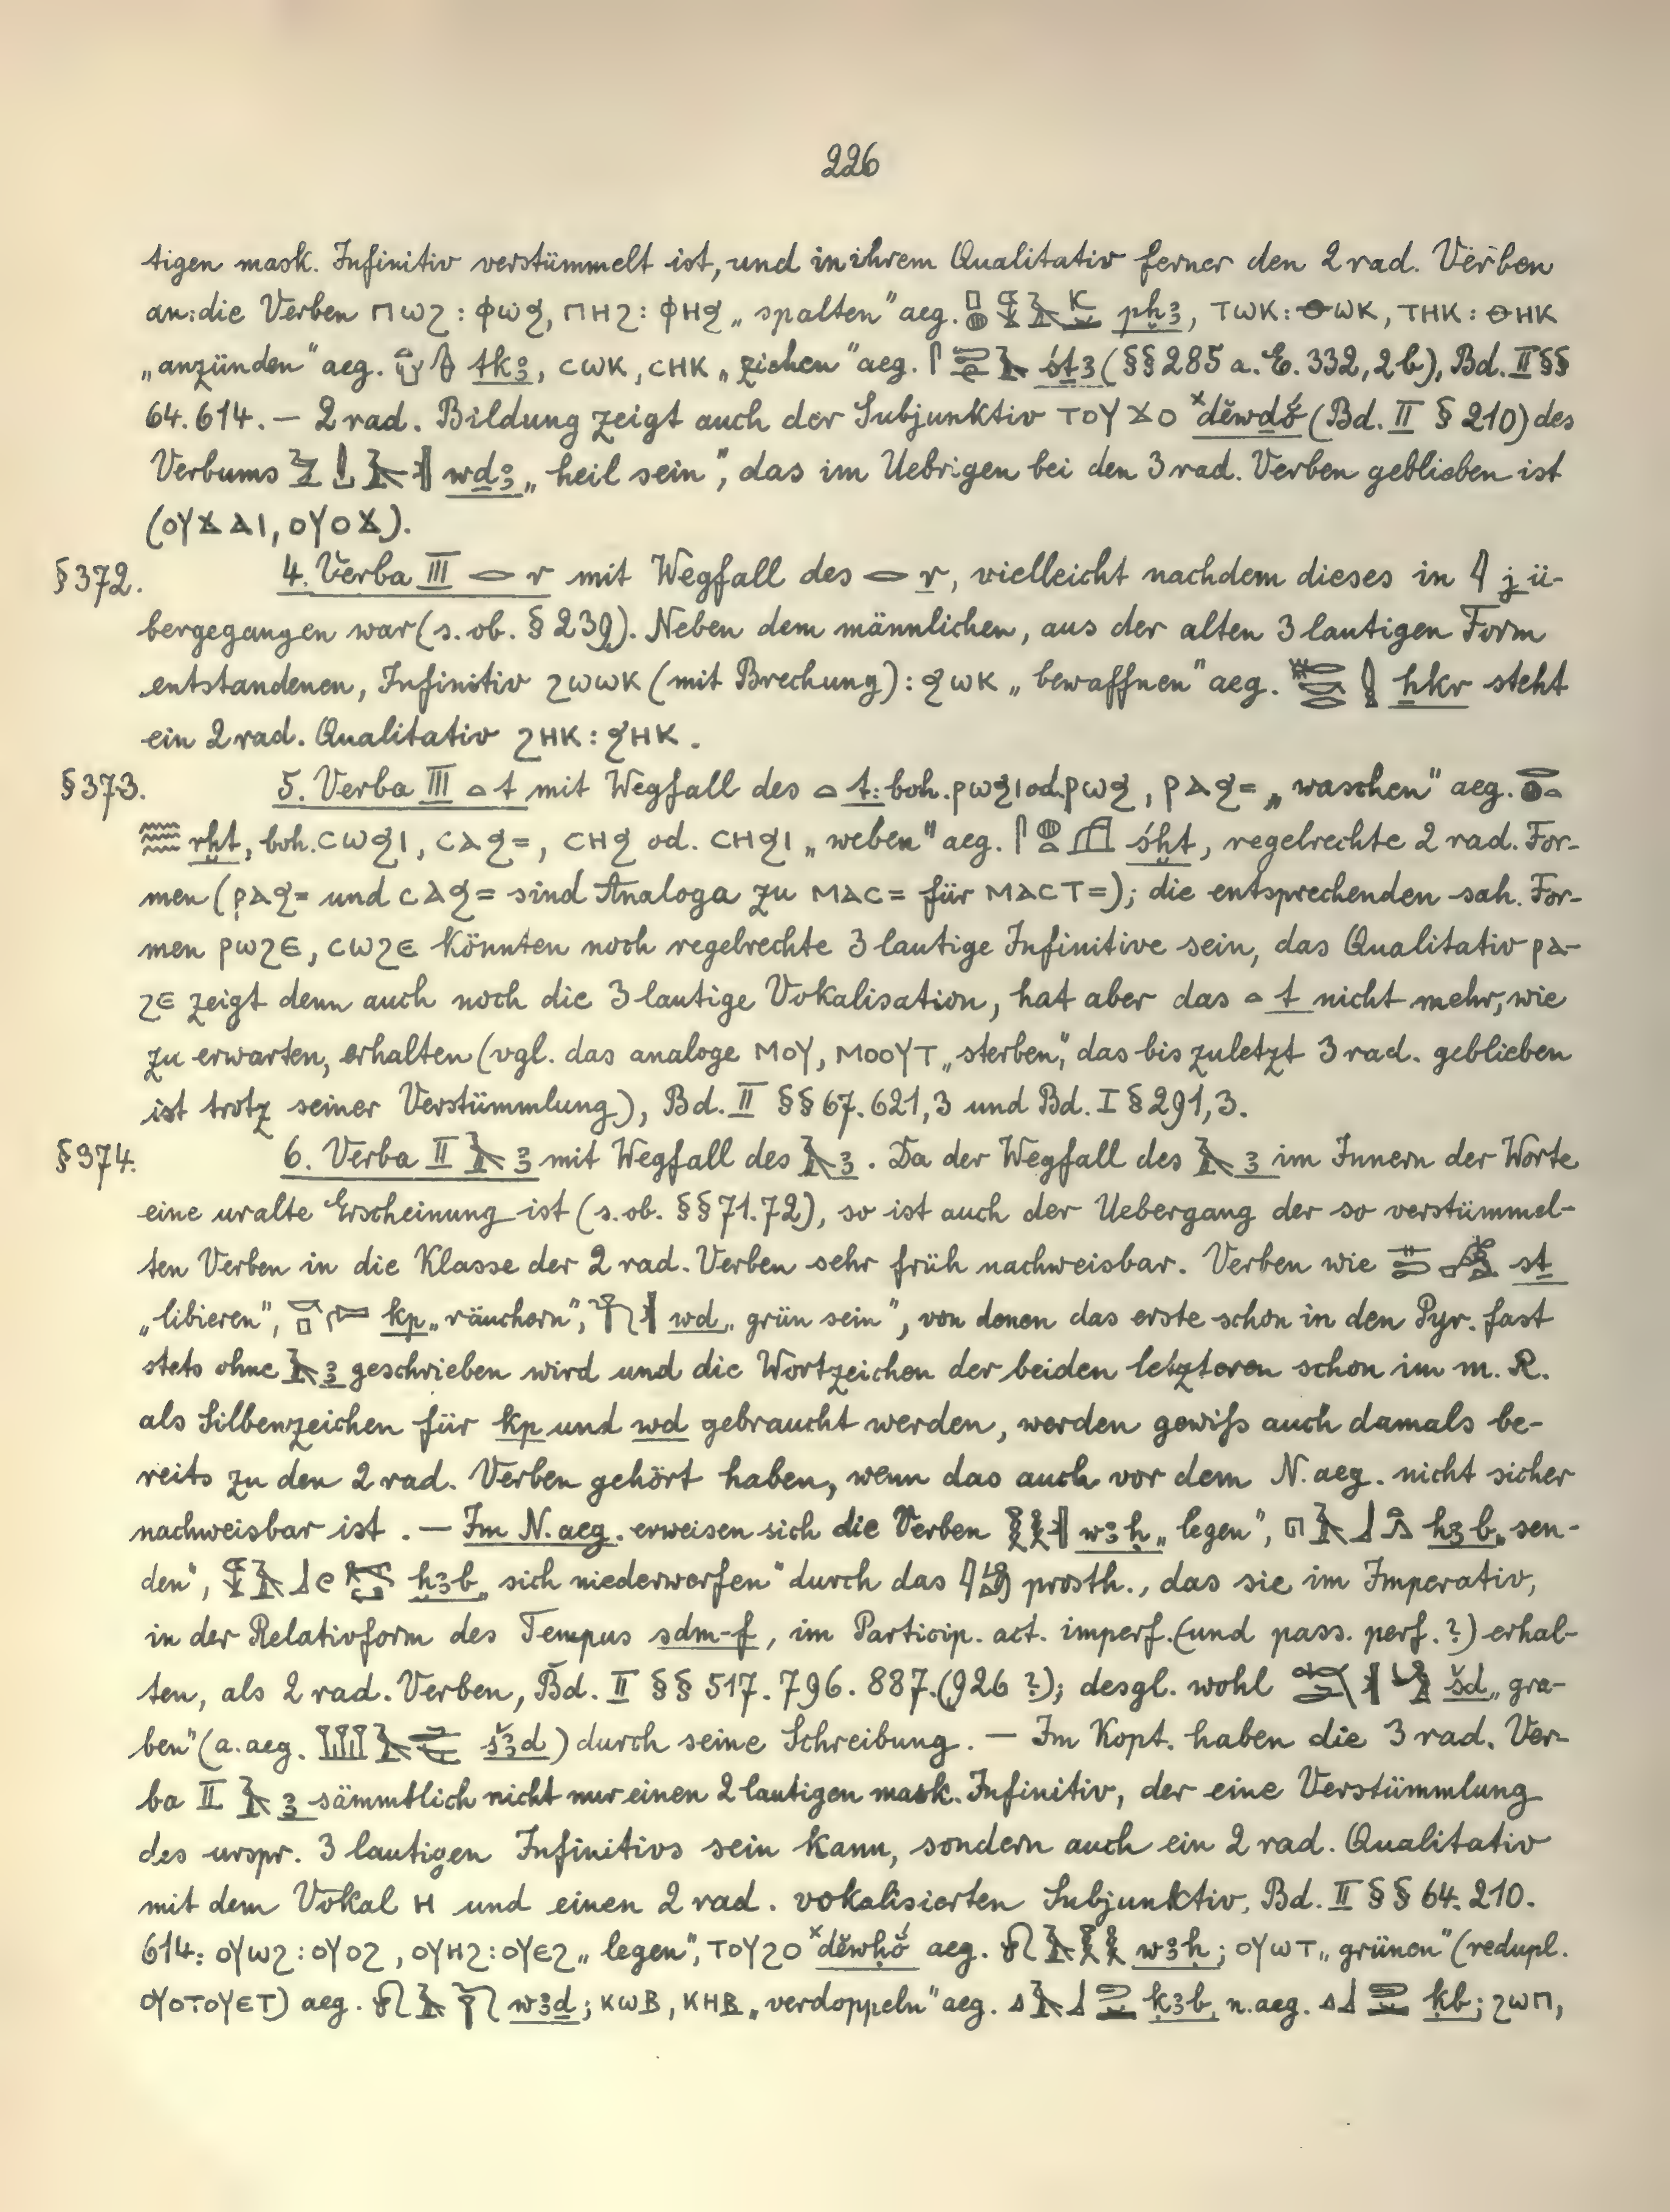 226
tigen mask. Infinitiv verstümmelt ist, und in ihrem Qualitativ ferner den 2 rad. Verben
an: die Verben ⲡⲱϩ : ⲫⲱϧ, ⲡⲏϩ : ⲫⲏϧ „spalten" aeg. pḫꜣ, ⲧⲱⲕ : ⲑⲱⲕ, ⲧⲏⲕ : ⲑⲏⲕ
„anzünden" aeg. tkꜣ, ⲥⲱⲕ, ⲥⲏⲕ „ziehen" aeg. śṯꜣ (§§ 285 a. E. 332, 2 b), Bd. II §§
64. 614. — 2 rad. Bildung zeigt auch der Subjunktiv ⲧⲟⲩϫⲟ ˣdĕwḏꜣŏ́ (Bd. II § 210) des
Verbums wḏꜣ „heil sein", das im Uebrigen bei den 3 rad. Verben geblieben ist
(ⲟⲩϫⲁⲓ, ⲟⲩⲟϫ).
§ 372. 4. Verba III 𓂋 r mit Wegfall des 𓂋 r, vielleicht nachdem dieses in 𓇋 j ü-
bergegangen war (s. ob. § 239). Neben dem männlichen, aus der alten 3 lautigen Form
entstandenen, Infinitiv ϩⲱⲱⲕ (mit Brechung) : ϧⲱⲕ „bewaffnen" aeg. ẖkr steht
ein 2 rad. Qualitativ ϩⲏⲕ : ϧⲏⲕ.
§ 373. 5. Verba III 𓏏 t mit Wegfall des 𓏏 t: boh. ⲣⲱϧⲓ od. ⲣⲱϧ, ⲣⲁϧ= „waschen" aeg.
rḫt, boh. ⲥⲱϧⲓ, ⲥⲁϧ=, ⲥⲏϧ od. ⲥⲏϧⲓ „weben" aeg. śḫt, regelrechte 2 rad. For-
men (ⲣⲁϧ= und ⲥⲁϧ= sind Analoga zu ⲙⲁⲥ= für ⲙⲁⲥⲧ=); die entsprechenden sah. For-
men ⲣⲱϩⲉ, ⲥⲱϩⲉ könnten noch regelrechte 3 lautige Infinitive sein, das Qualitativ ⲣⲁ-
ϩⲉ zeigt denn auch noch die 3 lautige Vokalisation, hat aber das 𓏏 t nicht mehr, wie
zu erwarten, erhalten (vgl. das analoge ⲙⲟⲩ, ⲙⲟⲟⲩⲧ „sterben", das bis zuletzt 3 rad. geblieben
ist trotz seiner Verstümmlung), Bd. II §§ 67. 621, 3 und Bd. I § 291, 3.
§ 374. 6. Verba II 𓄿 ꜣ mit Wegfall des 𓄿 ꜣ. Da der Wegfall des 𓄿 ꜣ im Innern der Worte
eine uralte Erscheinung ist (s. ob. §§ 71. 72), so ist auch der Uebergang der so verstümmel-
ten Verben in die Klasse der 2 rad. Verben sehr früh nachweisbar. Verben wie sṯ
„libieren", kp „räuchern", wḏ „grün sein", von denen das erste schon in den Pyr. fast
stets ohne 𓄿 ꜣ geschrieben wird und die Wortzeichen der beiden letzteren schon im m. R.
als Silbenzeichen für kp und wḏ gebraucht werden, werden gewiß auch damals be-
reits zu den 2 rad. Verben gehört haben, wenn das auch vor dem N. aeg. nicht sicher
nachweisbar ist. — Im N. aeg. erweisen sich die Verben wꜣḥ „legen", hꜣb „sen-
den", ḥꜣb „sich niederwerfen" durch das prosth., das sie im Imperativ,
in der Relativform des Tempus sḏm-f, im Particip. act. imperf. (und pass. perf.?) erhal-
ten, als 2 rad. Verben, Bd. II §§ 517. 796. 887. (926 ?); desgl. wohl šd „gra-
ben" (a. aeg. šꜣd) durch seine Schreibung. — Im Kopt. haben die 3 rad. Ver-
ba II 𓄿 ꜣ sämmtlich nicht nur einen 2 lautigen mask. Infinitiv, der eine Verstümmlung
des urspr. 3 lautigen Infinitivs sein kann, sondern auch ein 2 rad. Qualitativ
mit dem Vokal ⲏ und einen 2 rad. vokalisierten Subjunktiv, Bd. II §§ 64. 210.
614: ⲟⲩⲱϩ : ⲟⲩⲟϩ, ⲟⲩⲏϩ : ⲟⲩⲉϩ „legen", ⲧⲟⲩϩⲟ ˣdĕwḥŏ́ aeg. wꜣḥ; ⲟⲩⲱⲧ „grünen" (redupl.
ⲟⲩⲟⲧⲟⲩⲉⲧ) aeg. wꜣḏ; ⲕⲱⲃ, ⲕⲏⲃ „verdoppeln" aeg. ḳꜣb, n. aeg. ḳb; ϩⲱⲡ,